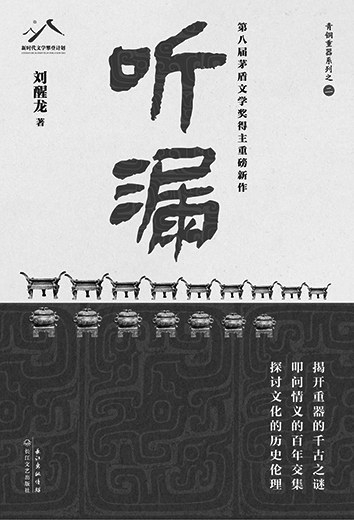 青铜重器系列之二
新时代文学攀登计划
听漏
第八届茅盾文学奖得主重磅新作
刘醒龙 著
揭开重器的千古之谜
叩问情义的百年交集
探讨文化的历史伦理
长江出版传媒
长江文艺出版社